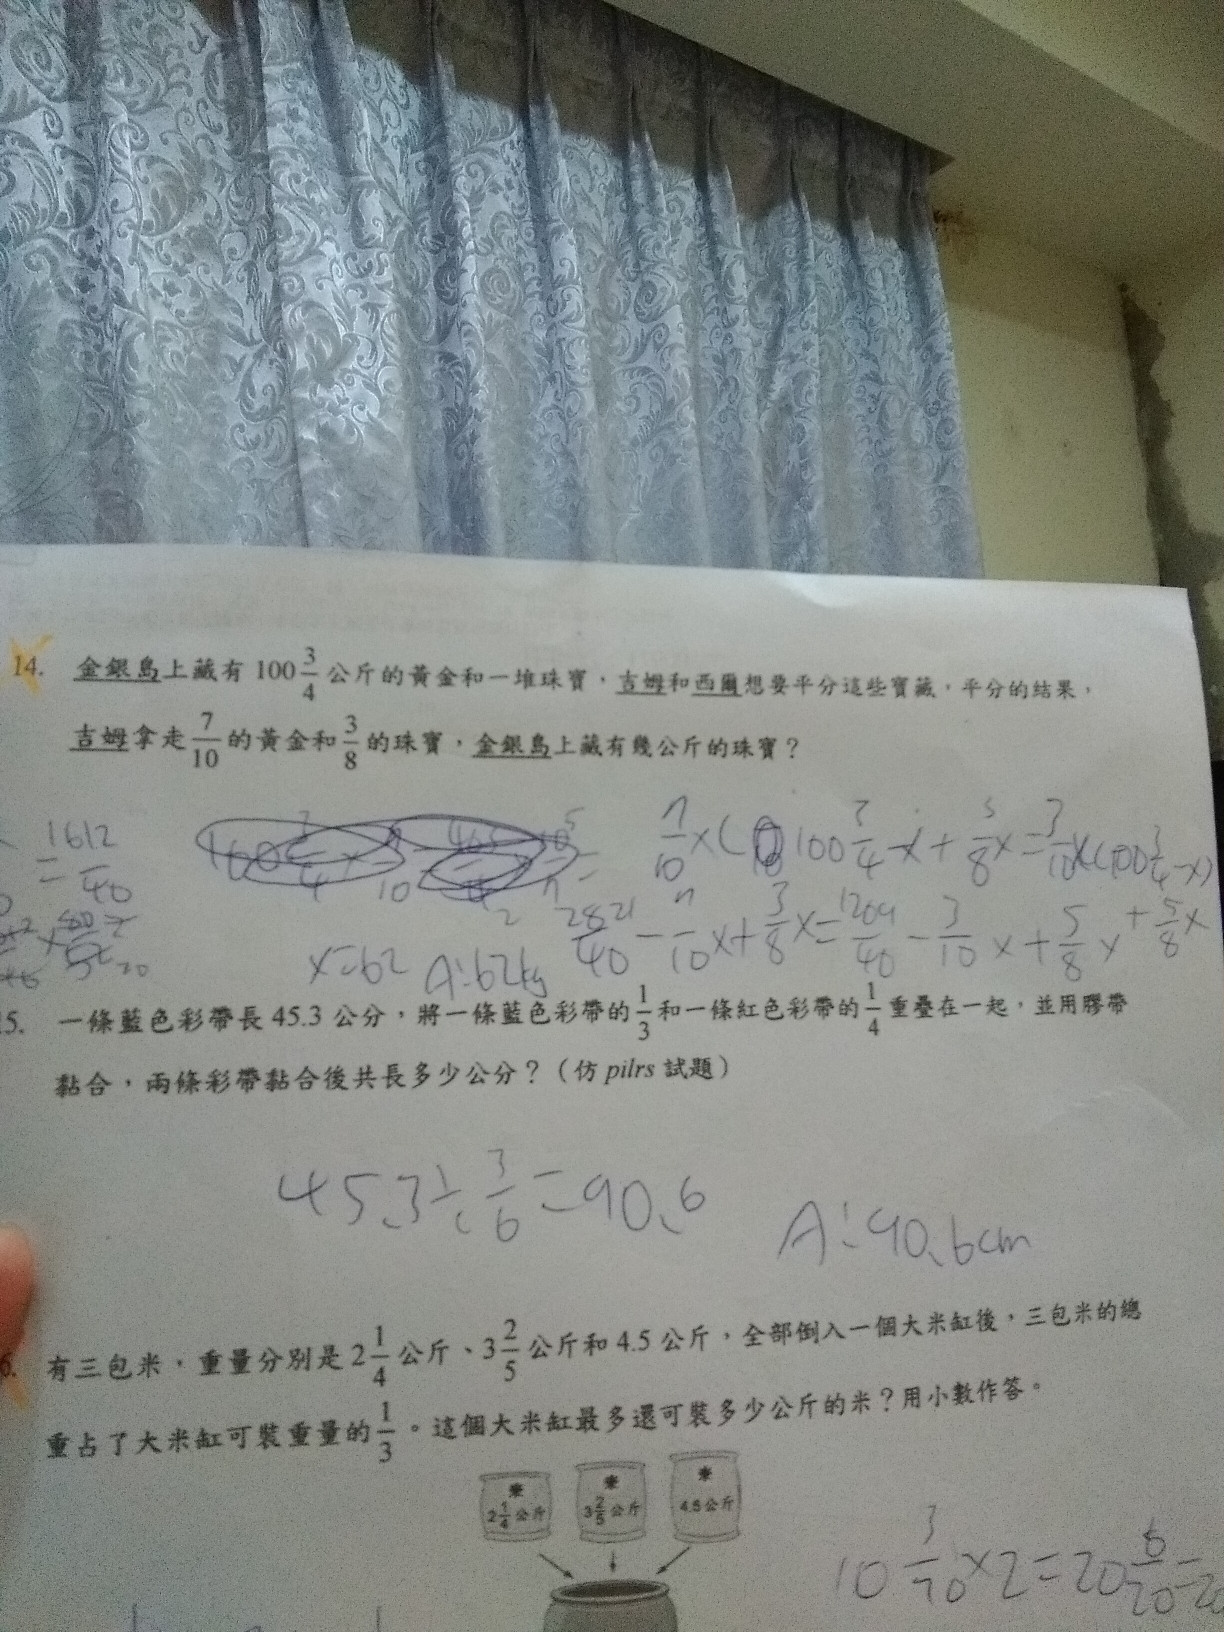 14. 金銀島上藏有 100 3/4 公斤的黃金和一堆珠寶，吉姆和西爾想要平分這些寶藏，平分的結果，
吉姆拿走 7/10 的黃金和 3/8 的珠寶，金銀島上藏有幾公斤的珠寶？
= 1612/40
7/10 x ( 100 3/4 - x + 3/8 x = 3/10 x (100 3/4 - x)
2821/40 - 7/10 x + 3/8 x = 1209/40 - 3/10 x + 5/8 x + 5/8 x
x = 62 A: 62kg
5. 一條藍色彩帶長 45.3 公分，將一條藍色彩帶的 1/3 和一條紅色彩帶的 1/4 重疊在一起，並用膠帶
黏合，兩條彩帶黏合後共長多少公分？（仿 pilrs 試題）
45.3 ÷ 3/6 = 90.6
A: 90.6cm
6. 有三包米，重量分別是 2 1/4 公斤、3 2/5 公斤和 4.5 公斤，全部倒入一個大米缸後，三包米的總
重占了大米缸可裝重量的 1/3。這個大米缸最多還可裝多少公斤的米？用小數作答。
米 米 米
2 1/4 公斤 3 2/5 公斤 4.5 公斤
10 3/10 x 2 = 20 6/20 = 20